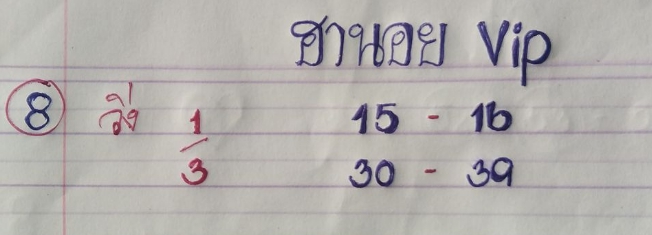 ฮานอย Vip
8 วิ่ง 1 15 - 16
3 30 - 39